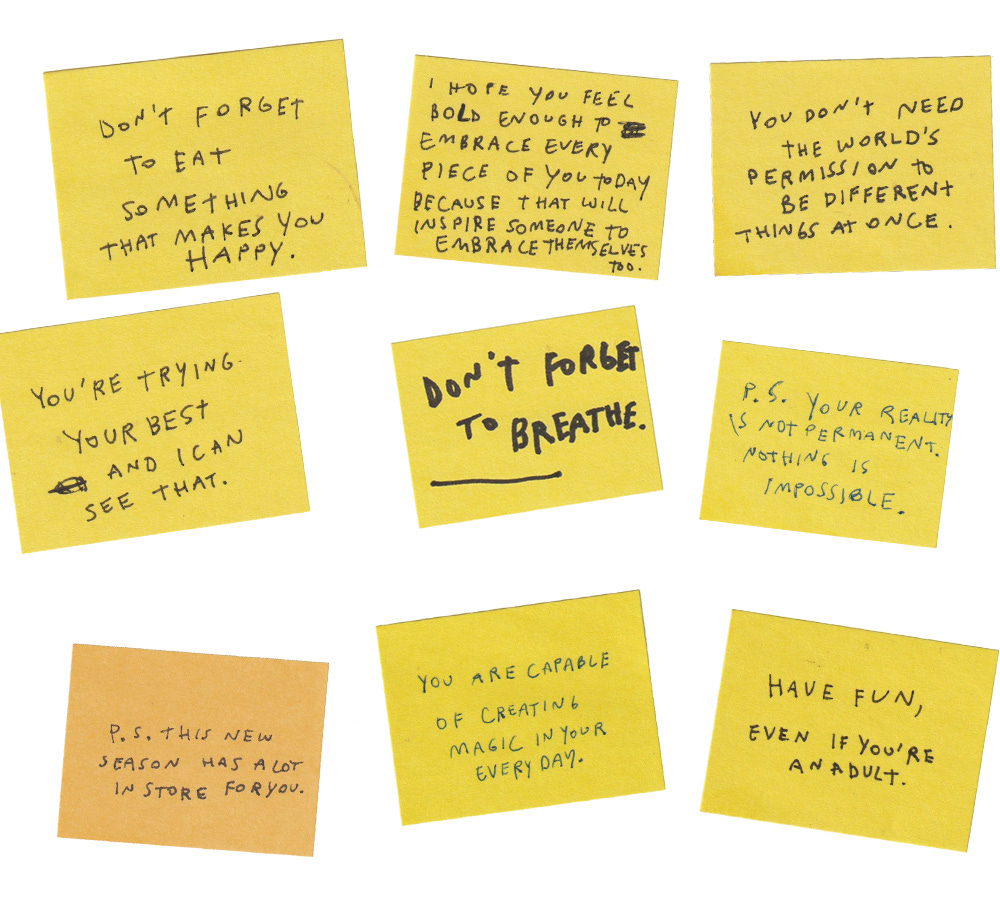 DON'T FORGET
TO EAT
SOMETHING
THAT MAKES YOU
HAPPY.
I HOPE YOU FEEL
BOLD ENOUGH TO
EMBRACE EVERY
PIECE OF YOU TODAY
BECAUSE THAT WILL
INSPIRE SOMEONE TO
EMBRACE THEMSELVES
TOO.
YOU DON'T NEED
THE WORLD'S
PERMISSION TO
BE DIFFERENT
THINGS AT ONCE.
YOU'RE TRYING
YOUR BEST
AND I CAN
SEE THAT.
DON'T FORGET
TO BREATHE.
P.S. YOUR REALITY
IS NOT PERMANENT.
NOTHING IS
IMPOSSIBLE.
P.S. THIS NEW
SEASON HAS A LOT
IN STORE FOR YOU.
YOU ARE CAPABLE
OF CREATING
MAGIC IN YOUR
EVERY DAY.
HAVE FUN,
EVEN IF YOU'RE
AN ADULT.